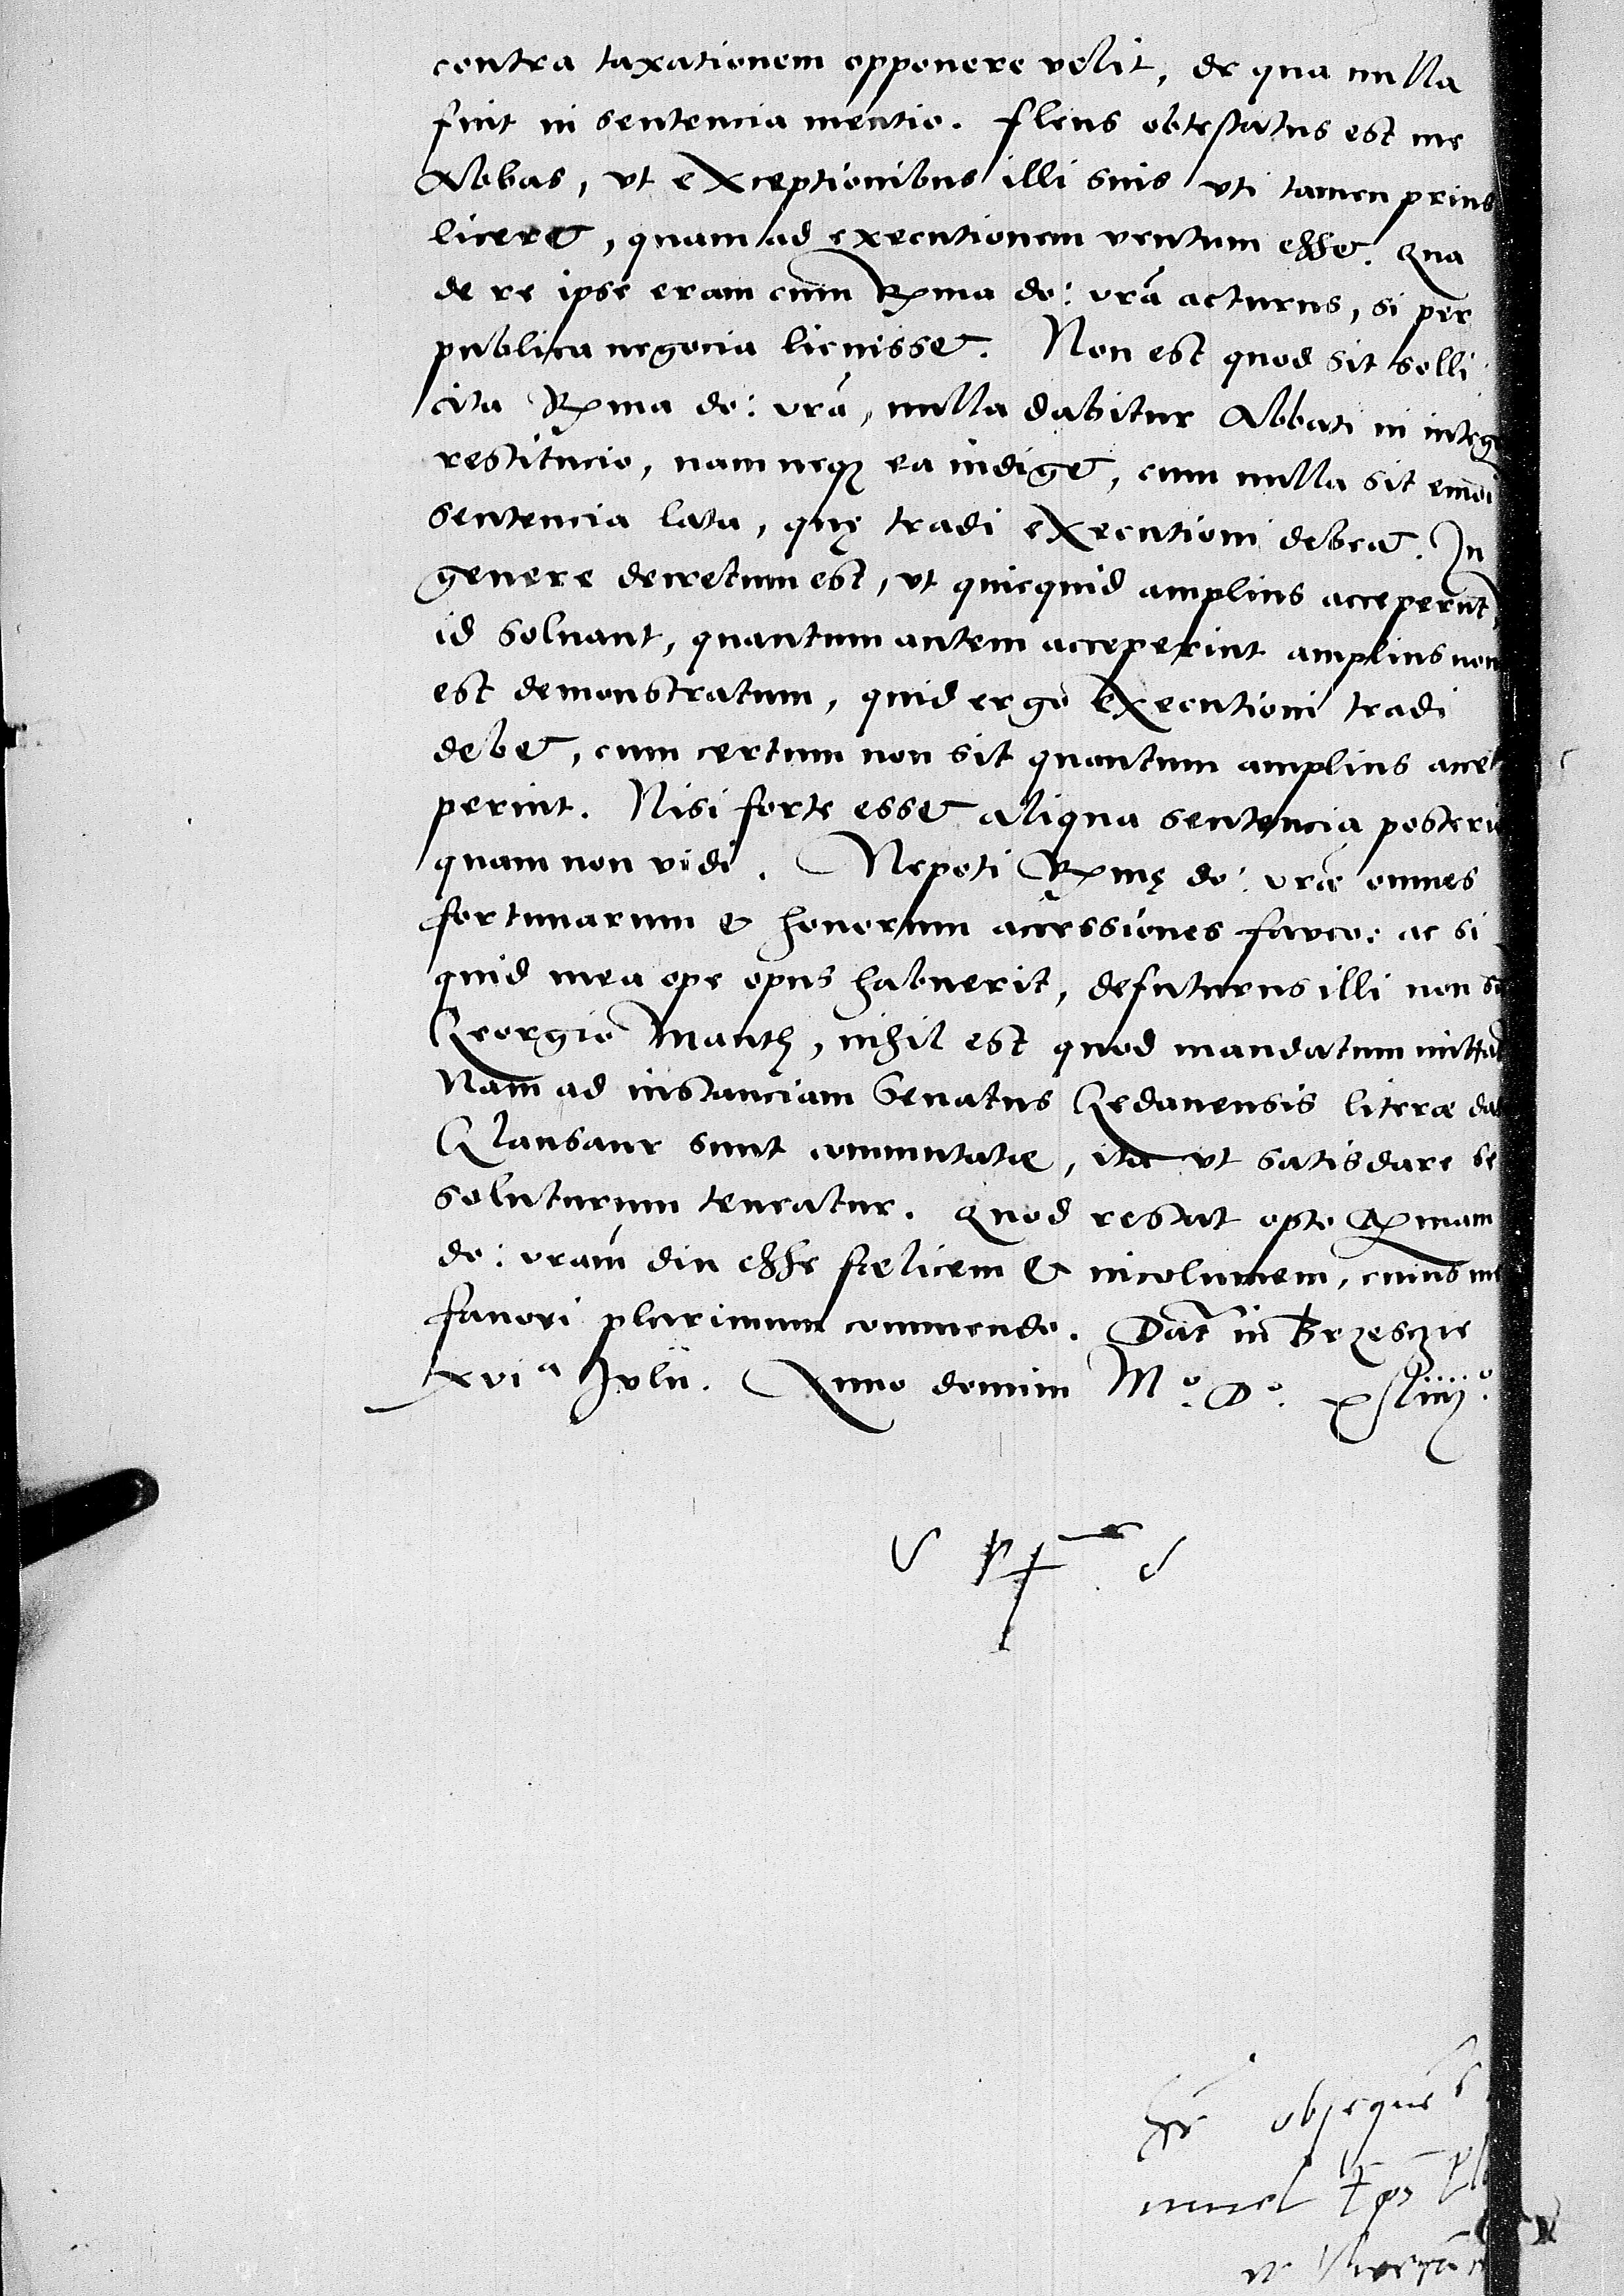 contra taxationem opponere velit, de qua nulla
fuit in sentencia mentio. Flens obtestatus est me
Abbas, vt exceptionibus illi suis vti tamen prius
liceret, quam ad executionem ventum esset. Qua
de re ipse eram cum Rma do: vrã acturus, si per
publica negocia licuisset. Non est quod sit solli
cita Rma do: vrã, nulla dabitur Abbati in integ
restitucio, nam neqz ea indiget, cum nulla sit
sentencia lata, quę tradi executioni debeat. In
genere decretum est, vt quicquid amplius acceperint,
id soluant, quantum autem acceperint amplius non
est demonstratum, quid ergo executioni tradi
debet, cum certum non sit quantum amplius acce
perint. Nisi forte esset aliqua sentencia posteri
quam non vidi. Nepoti Rmę do: vræ omnes
fortunarum & honorum accessiones faveo: ac si
quid mea ope opus habuerit, defuturus illi non s
Georgio Manth, nihil est quod mandatum mittat
Nam ad instanciam Senatus Gedanensis literæ da
Clausane sunt commutatæ, ita vt satisdare se
soluturum teneatur. Quod restat opto Rmam
do: vram̃ diu esse fœlicem & incolumem, cuius me
fauori plurimum commendo. Dat̃ in Brzesczie
xvi a Julii. Anno domini M.o D.o xliiij.o